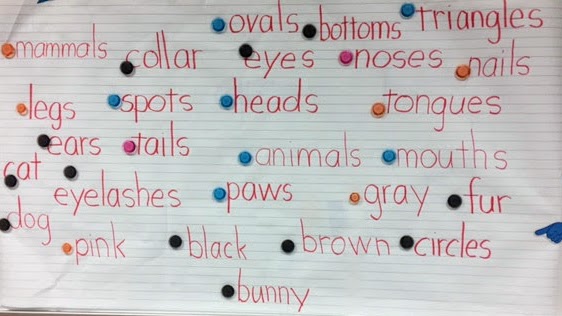 ovals bottoms triangles
mammals collar eyes noses nails
legs spots heads tongues
ears tails animals mouths
cat eyelashes paws gray fur
dog pink black brown circles
bunny